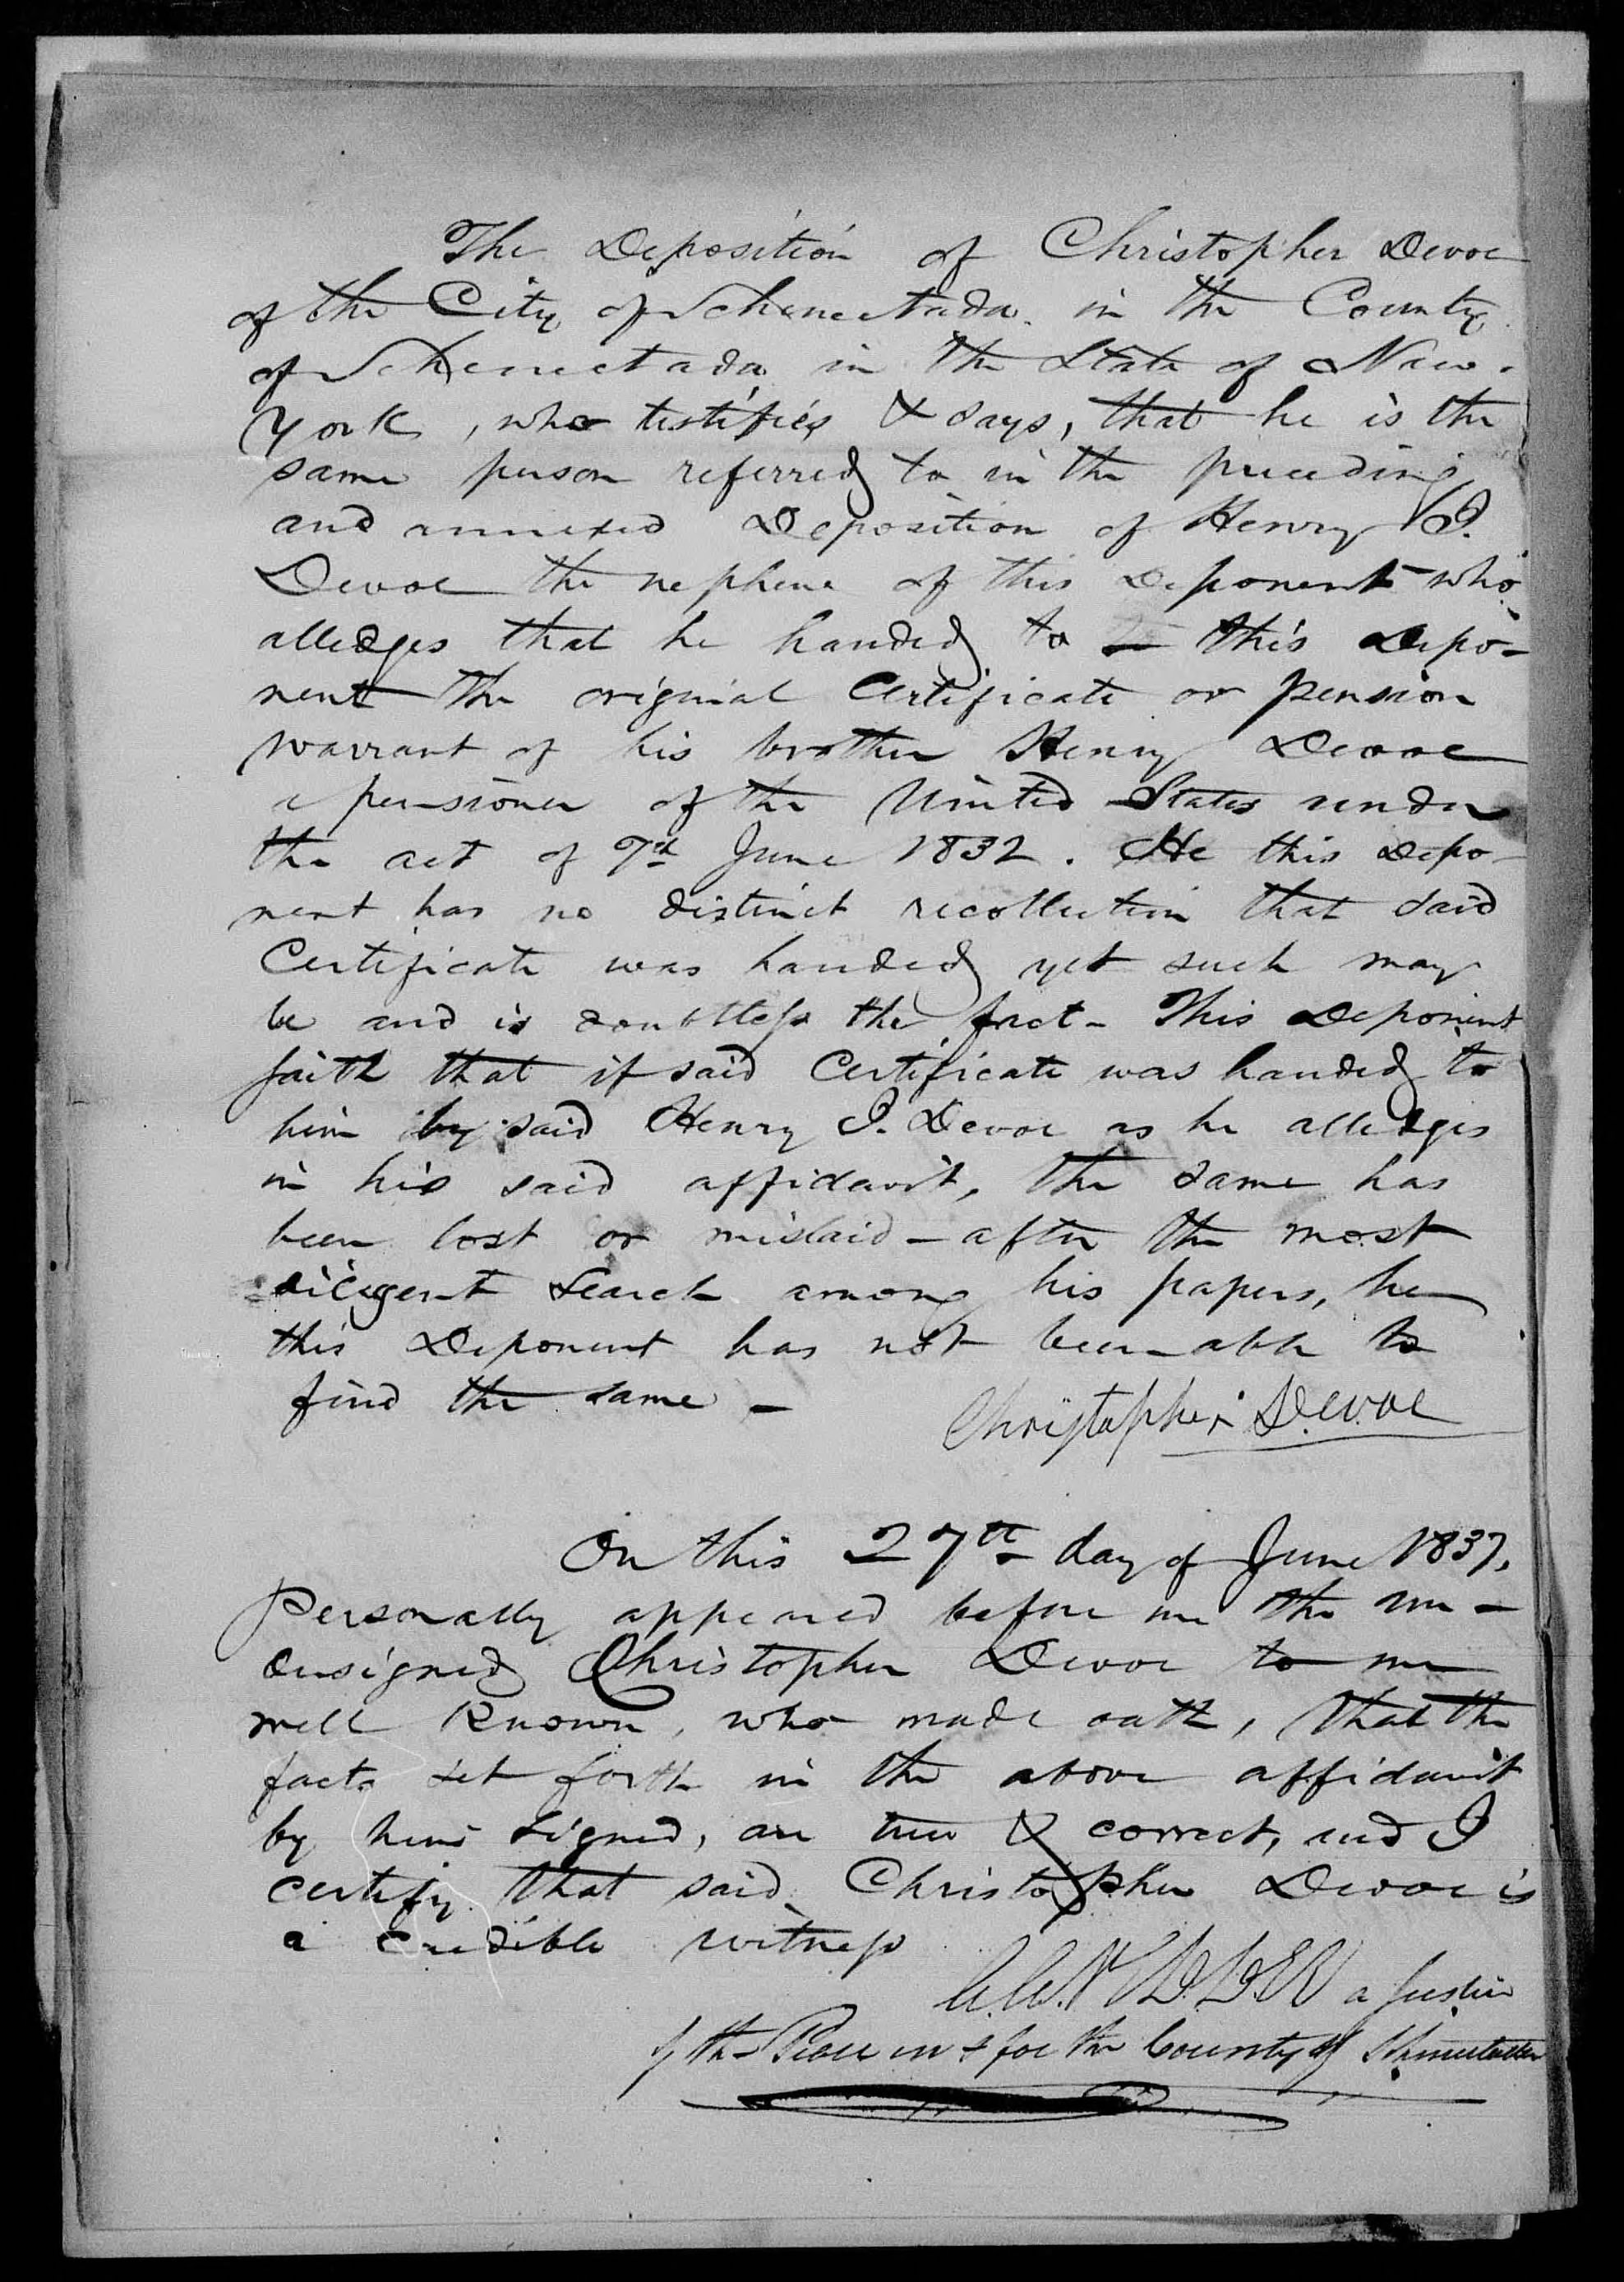 The Deposition of Christopher Devoe
of the City of Schenectada in the County
of Schenectada in the State of New.
York, who testifies & says, that he is the
same person referred to in the preceding
and annexed Deposition of Henry I.
Devoe the nephew of this Deponent who
alledges that he handed to this Depo-
nent the original Certificate or pension
warrant of his brother Henry Devoe
a pensioner of the United States under
the act of 7th June 1832. He this Depo-
nent has no distinct recollection that said
Certificate was handed yet such may
be and is doubtless the fact - This Deponent
saith that if said Certificate was handed to
him by said Henry I. Devoe as he alledges
in his said affidavit, the same has
been lost or mislaid - after the most
diligent search among his papers, he
this Deponent has not been able to
find the same -
Christopher Devoe
On this 27th day of June 1837,
Personally appeared before me the un-
dersigned Christopher Devoe to me
well Known, who made oath, that the
facts set forth in the above affidavit
by him signed, are true & correct, and I
certify that said Christopher Devoe is
a credible witness
a Justice
of the Peace in & for the County of Schenectada